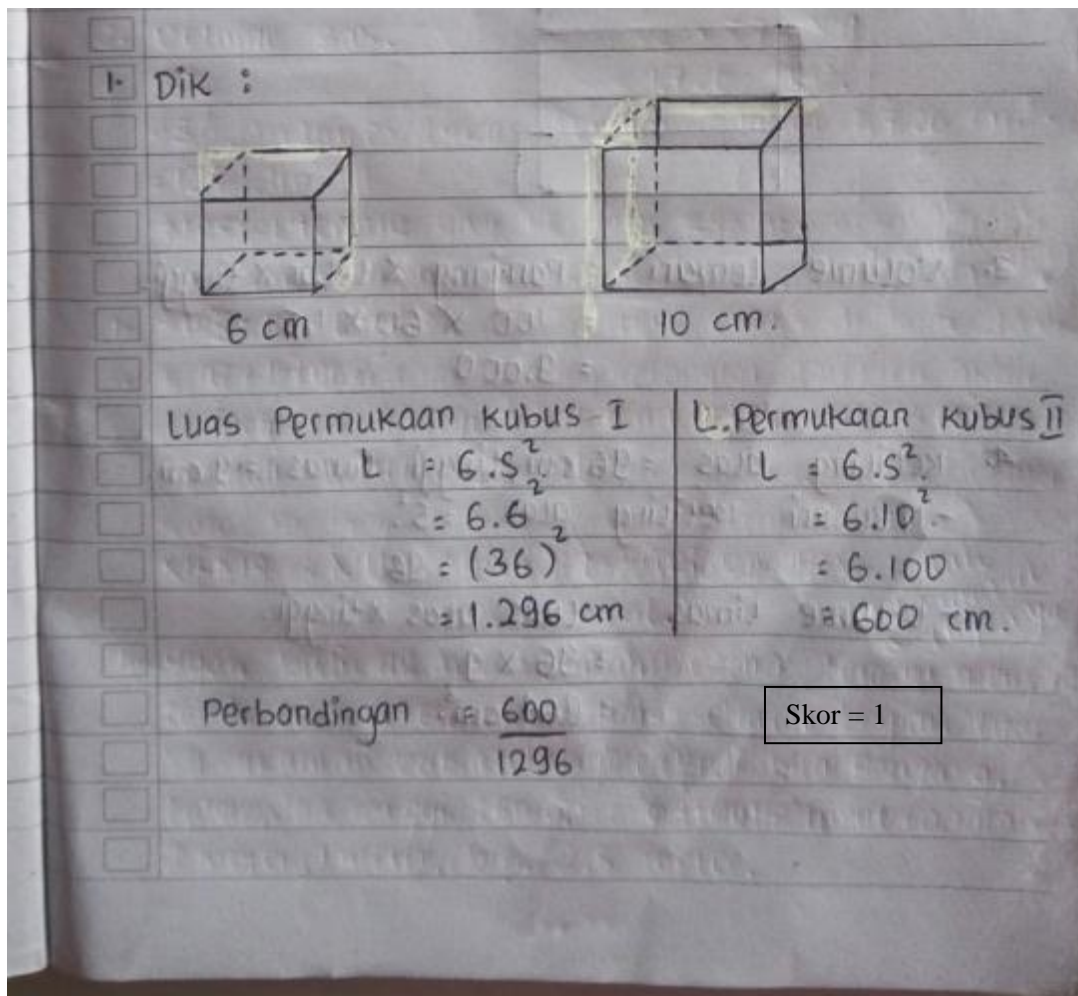 1. Dik :
6 cm
10 cm.
Luas Permukaan Kubus I
L = 6.S²
= 6.6²
= (36)²
= 1.296 cm
L. Permukaan Kubus II
L = 6.S²
= 6.10²
= 6.100
= 600 cm.
Perbandingan = 600
1296
Skor = 1